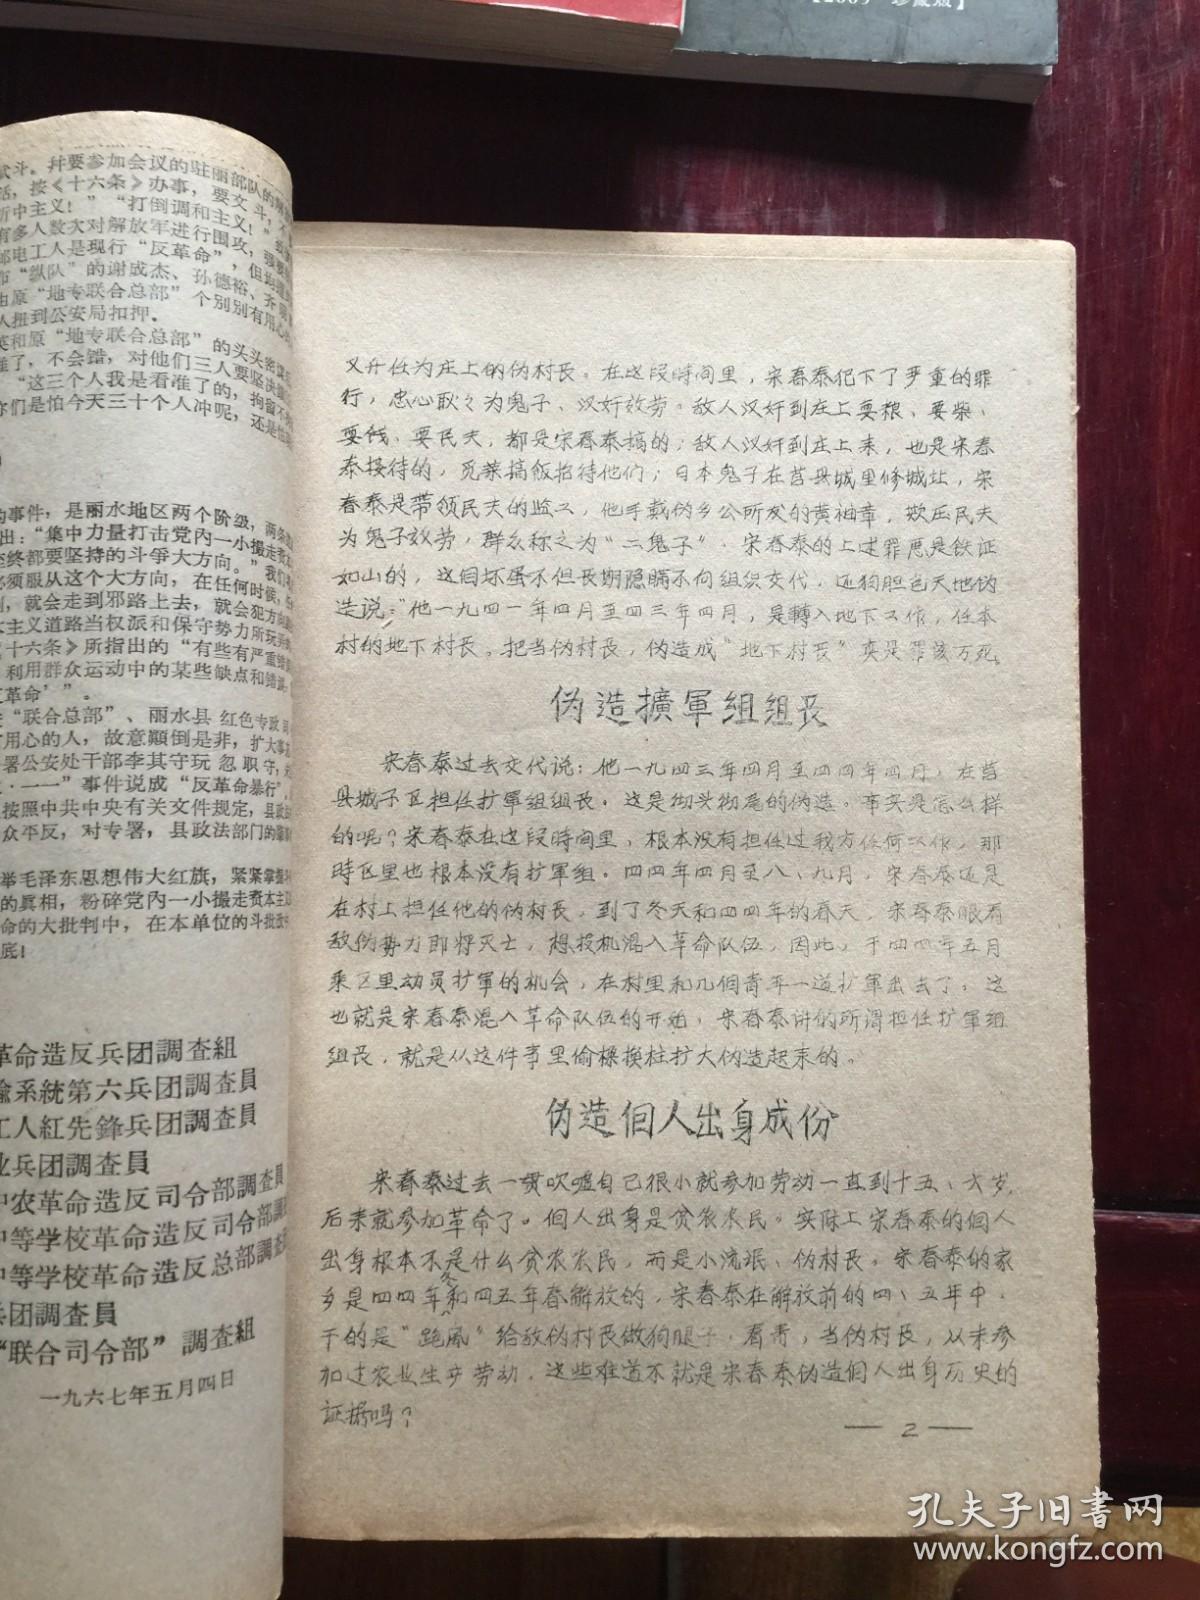 【2009 珍藏版】
武斗。并要参加会议的驻丽部队的
话，按《十六条》办事，要文斗，不
折中主义！”“打倒调和主义！”
有多人数次对解放军进行围攻，强要
邮电工人是现行“反革命”，但
布“纵队”的谢成杰、孙德裕、齐
由原“地专联合总部”个别别有用心
人扭到公安局扣押。
英和原“地专联合总部”的头头密谋
准了，不会错，对他们三人要坚决
“这三个人我是看准了的，拘留不
你们是怕今天三十个人冲呢，还是怕
的事件，是丽水地区两个阶级，两条
出：“集中力量打击党内一小撮走资
至终都要坚持的斗争大方向。”我们
必须服从这个大方向，在任何时候，
则，就会走到邪路上去，就会犯方向
主义道路当权派和保守势力所玩弄
《十六条》所指出的“有些有严重错
利用群众运动中的某些缺点和错误，
反革命’”。
“联合总部”、丽水县红色专政
用心的人，故意颠倒是非，扩大事
署公安处干部李其守玩忽职守，
·一一”事件说成“反革命暴行”，
按照中共中央有关文件规定，县政
众平反，对专署，县政法部门的
举毛泽东思想伟大红旗，紧紧掌握
的真相，粉碎党内一小撮走资本主
命的大批判中，在本单位的斗批
底！
革命造反兵团調査組
輸系統第六兵团調査員
工人紅先鋒兵团調査員
业兵团調査員
中农革命造反司令部調査員
中等学校革命造反司令部調
中等学校革命造反总部調査
兵团調査員
“联合司令部”調査組
一九六七年五月四日
又升任为庄上的伪村长。在这段時间里，宋春泰犯下了严重的罪
行，忠心耿々为鬼子、汉奸效劳。敌人汉奸到庄上要粮、要柴、
要钱、要民夫，都是宋春泰搞的；敌人汉奸到庄上来，也是宋春
泰接待的，觅菜搞飯招待他们；日本鬼子在莒县城里修城址，宋
春泰是带领民夫的监工，他手戴伪乡公所发的黄袖章，欺压民夫
为鬼子效劳，群众称之为“二鬼子”．宋春泰的上述罪恶是铁证
如山的，这個坏蛋不但長期隐瞒不向组织交代，还狗胆包天地伪
造说：“他一九四一年四月至四三年四月，是轉入地下工作，任本
村的地下村長。把当伪村長，伪造成“地下村長”真是罪该万死
伪造擴軍組組長
宋春泰过去交代说：他一九四三年四月至四四年四月，在莒
县城子区担任扩軍组组長，这是彻头彻尾的伪造。事实是怎么样
的呢？宋春泰在这段時间里，根本没有担任过我方任何工作，那
時区里也根本没有扩軍组。四四年四月至八、九月，宋春泰还是
在村上担任他的伪村長，到了冬天和四四年的春天，宋春泰眼看
敌伪势力即将灭亡，想投机混入革命队伍，因此，于四四年五月
乘区里动员扩軍的机会，在村里和几個青年一道扩軍出去了，这
也就是宋春泰混入革命队伍的开始，宋春泰讲的所谓担任扩軍组
组長，就是从这件事里偷樑换柱扩大伪造起来的。
伪造個人出身成份
宋春泰过去一贯吹嘘自己很小就参加劳动一直到十五、六岁，
后来就参加革命了。個人出身是贫农农民。实际上宋春泰的個人
出身根本不是什么贫农农民，而是小流氓、伪村長。宋春泰的家
乡是四四年冬和四五年春解放的，宋春泰在解放前的四、五年中，
干的是“跑風”给敌伪村長做狗腿子，看青，当伪村長，从未参
加过农业生产劳动，这些难道不就是宋春泰伪造個人出身历史的
証据吗？
— 2 —
孔夫子旧书网
www.kongfz.com